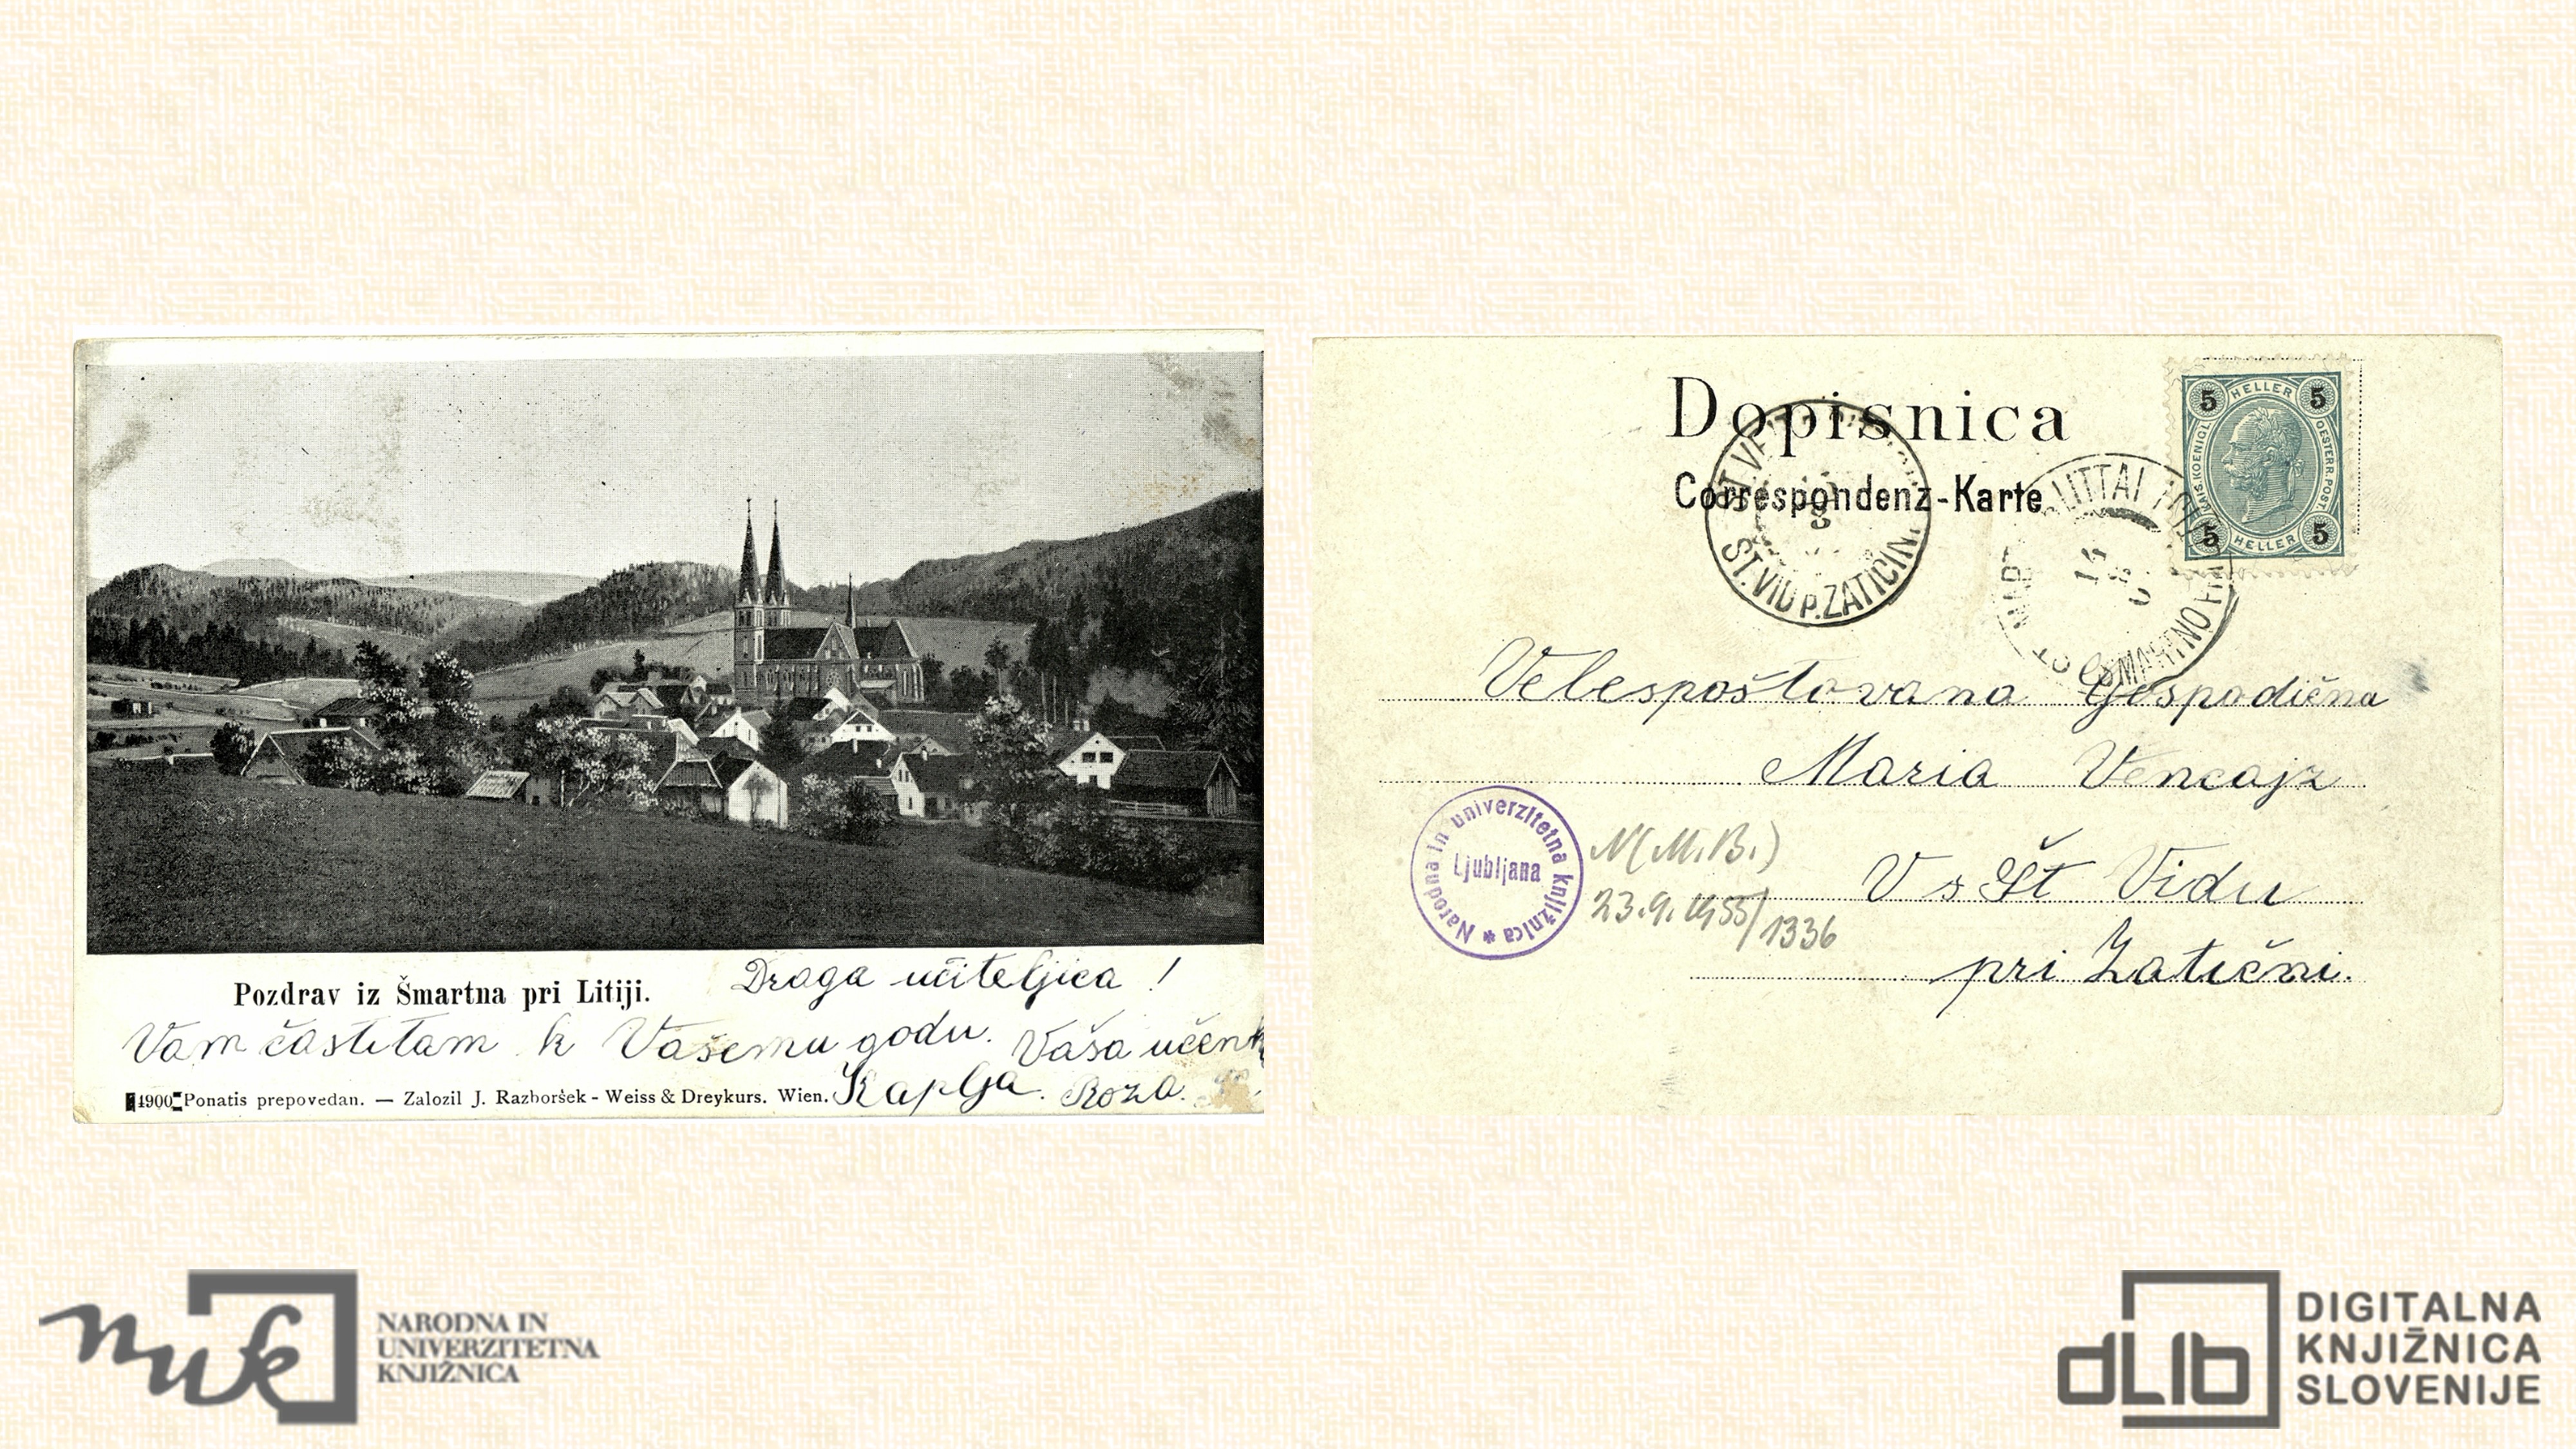 Pozdrav iz Šmartna pri Litiji.
Draga učiteljica !
Vam častitam k Vašemu godu. Vaša učenk
Kaplja. Roza.
1900 Ponatis prepovedan. — Založil J. Razboršek - Weiss & Dreykurs. Wien.
Dopisnica
Correspondenz-Karte
ST. VID P. ZATIČIN
LITTAI
ŠMARTNO
HELLER
KAIS. KOENIGL.
OESTERR. POST
HELLER
5 5
5 5
Velespoštovana Gospodična
Maria Vencajz
V s Št Vidu
pri Zatični.
Narodna in univerzitetna knjižnica *
Ljubljana
N(M.B.)
23.9.1955/1336
nuk
NARODNA IN
UNIVERZITETNA
KNJIŽNICA
dLib
DIGITALNA
KNJIŽNICA
SLOVENIJE